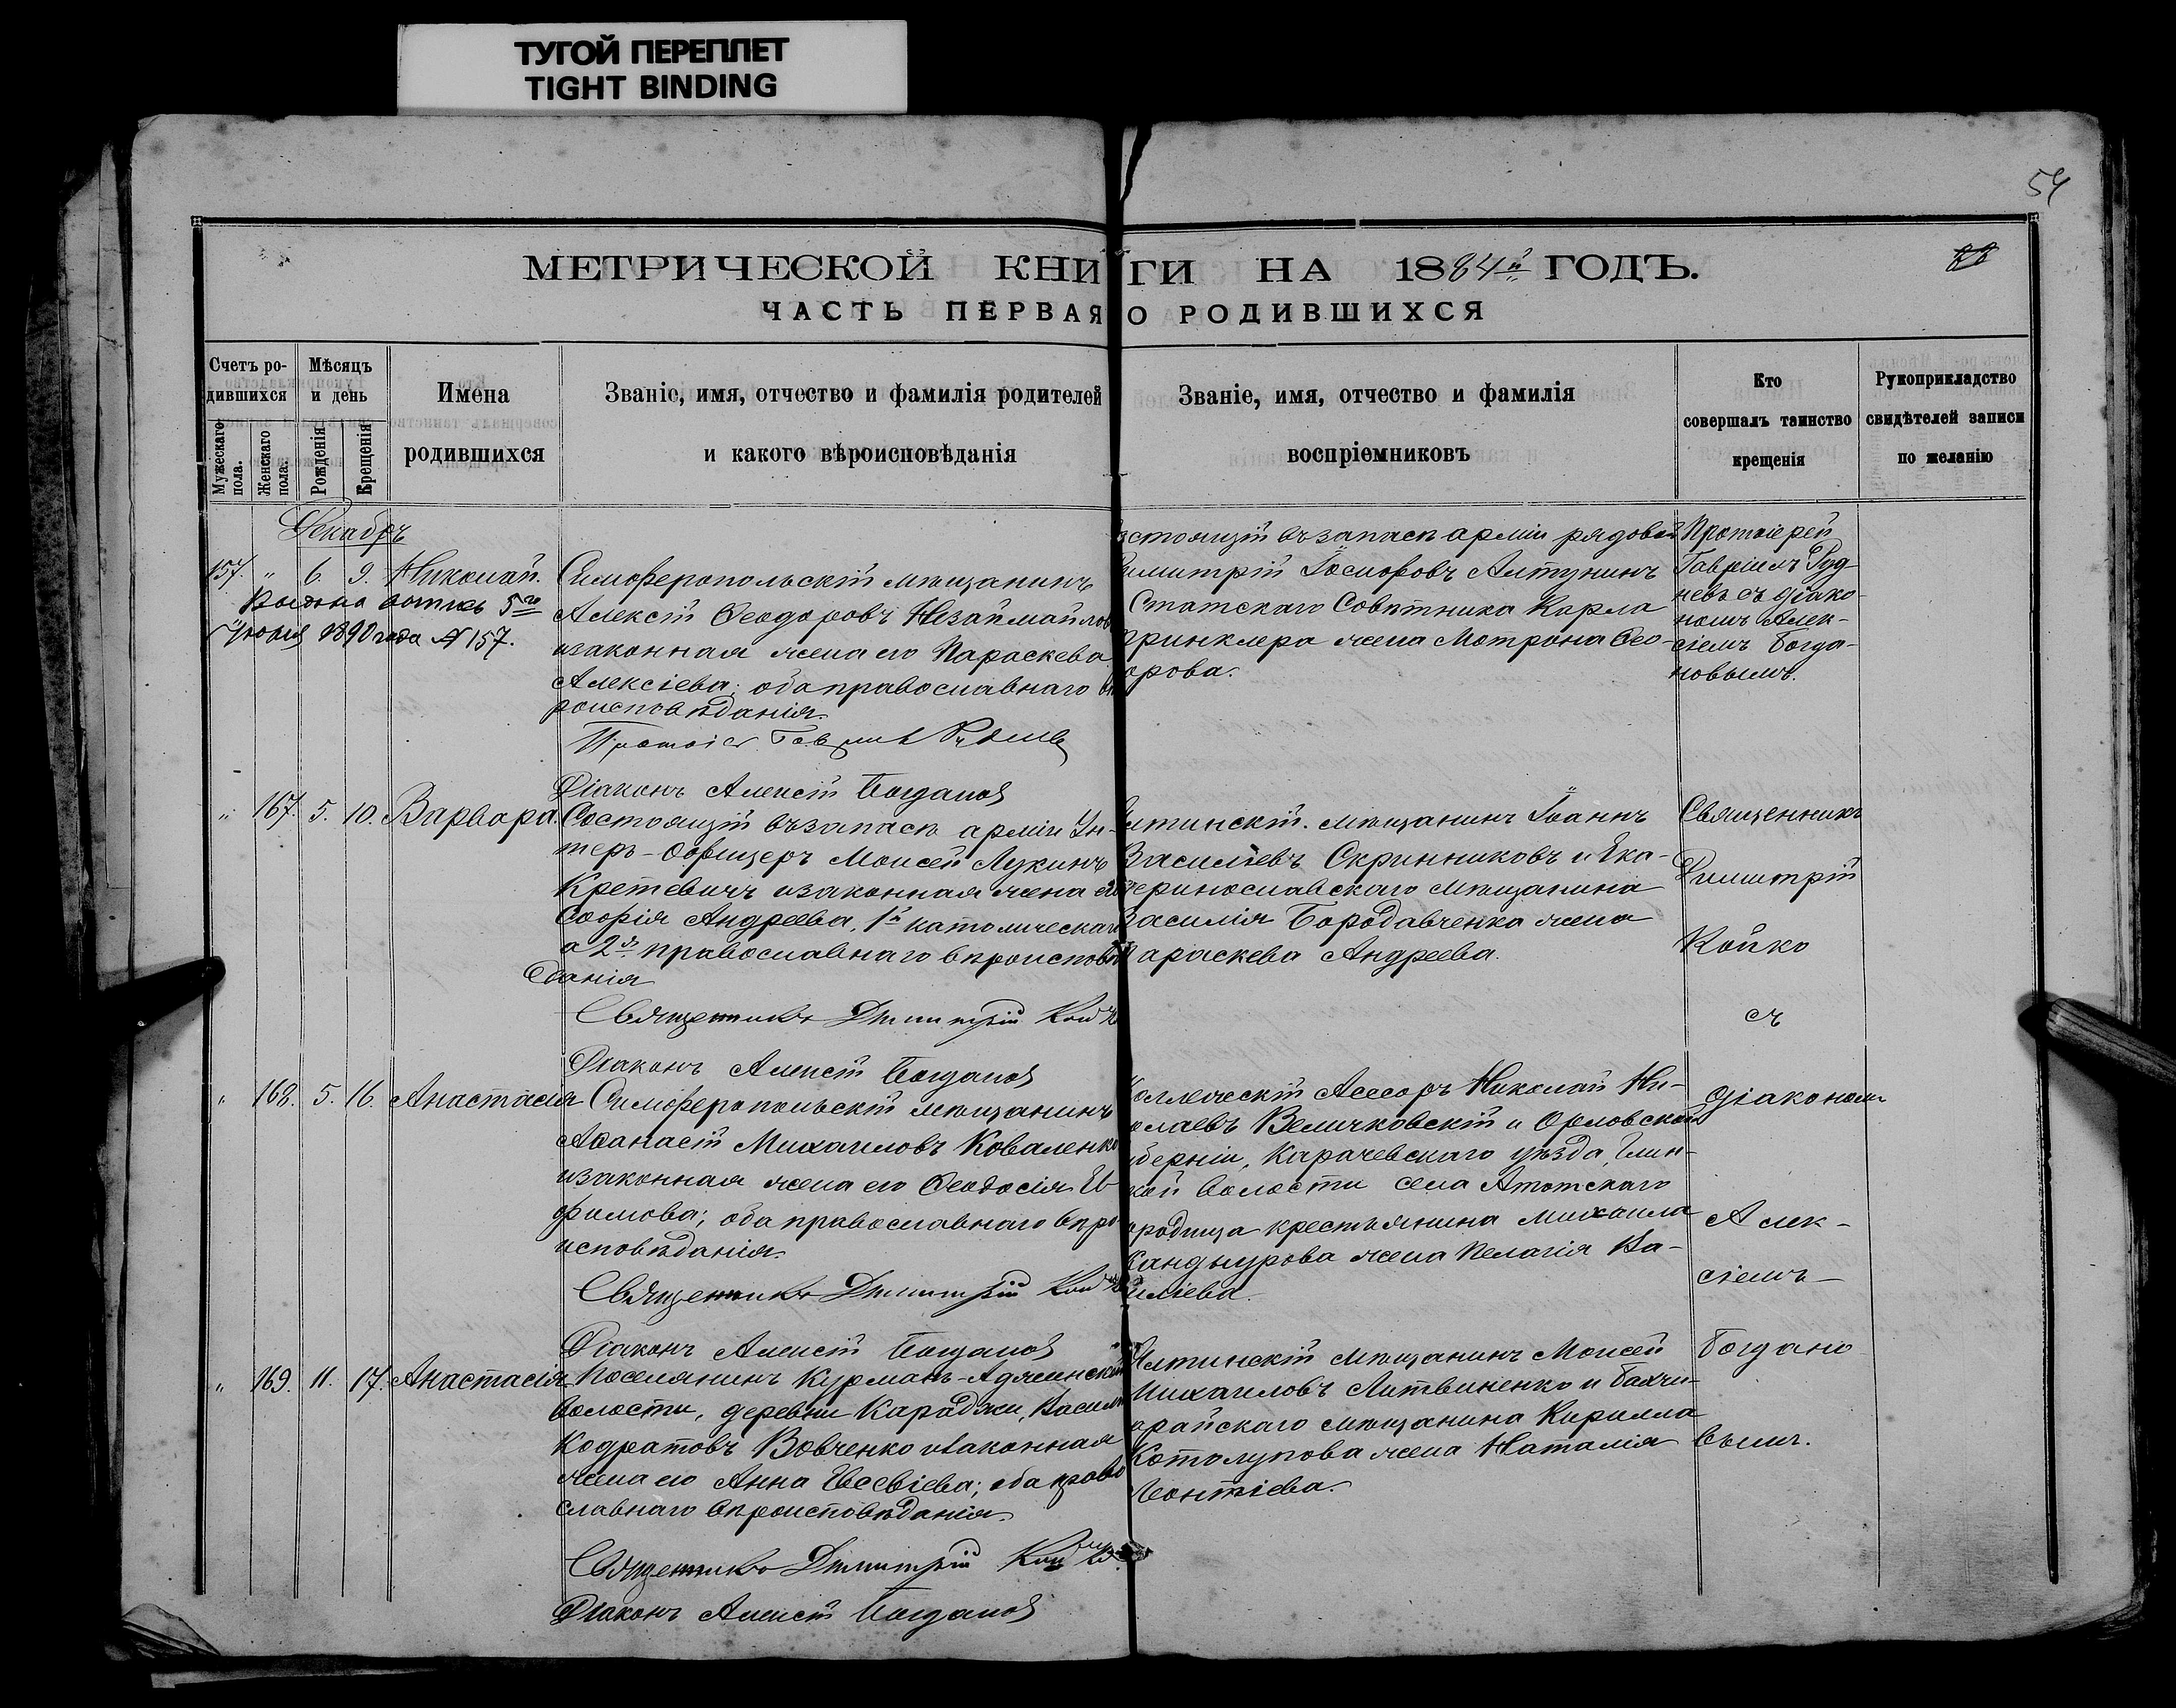 ТУГОЙ ПЕРЕПЛЕТ
TIGHT BINDING
54
МЕТРИЧЕСКОЙ КНИГИ НА 1884й ГОДЪ.
ЧАСТЬ ПЕРВАЯ О РОДИВШИХСЯ
Счетъ ро-
дившихся
Мужескаго пола.
Женскаго пола.
Мѣсяцъ
и день
Рожденія
Крещенія
Имена
родившихся
Званіе, имя, отчество и фамилія родителей
и какого вѣроисповѣданія
Званіе, имя, отчество и фамилія
воспріемниковъ
Кто
совершалъ таинство
крещенія
Рукоприкладство
свидѣтелей записи
по желанію
Декабрь
157. " 6. 9. Николай.
Выдана выпись 5го
1890 года № 157.
Симферопольскій мѣщанинъ
Алексій Ѳеодоровъ Незаймайлов
изаконная жена его Параскева
Алексіева; оба православнаго вѣ
роисповѣданія.
Діаконъ Алексій Богданов
стоящій въ запасѣ арміи рядовой
имитрій Іосифовъ Алтунинъ
Статскаго Совѣтника Карла
ринклера жена Мотрона Ѳео-
орова.
Протоіерей
Гавріилъ Руд-
невъ съ діако-
номъ Алек-
сіемъ Богда-
новымъ.
" 167. 5. 10. Варвара.
Состоящій въ запасѣ арміи Ун-
теръ-Офицеръ Моисей Лукинъ
Кретевичъ изаконная жена его
Софія Андреева, 1й католическаго
а 2я православнаго вѣроисповѣ
данія
Священникъ Димитрій Койко
Діаконъ Алексій Богданов
лтинскій мѣщанинъ Іоаннъ
Василіевъ Скринниковъ и Ека-
теринославскаго мѣщанина
Василія Бородавченка жена
Параскева Андреева.
Священникъ
Димитрій
Койко
съ
діакономъ
Алек-
сіемъ
Богдано-
вымъ.
" 168. 5. 16. Анастасія
Симферопольскій мѣщанинъ
Аѳанасій Михаиловъ Коваленко
изаконная жена его Ѳеодосія Ев
фимова; оба православнаго вѣро
исповѣданія.
Священникъ Димитрій Койко
Діаконъ Алексій Богданов
оллежскій Асесоръ Николай Ни-
олаевъ Величковскій и Орловской
уберніи, Карачевскаго уѣзда,
кой волости села
ородища крестьянина Михаила
жена Пелагія Ва-
силіева.
" 169. 11. 17. Анастасія
Поселянинъ Курманъ-Аджинской
волости, деревни Караджи, Василій
Кодратовъ Вовченко изаконная
жена его Анна Евсевіева; оба право
славнаго вѣроисповѣданія.
Священникъ Димитрій Койко
Діаконъ Алексій Богданов
Ялтинскій мѣщанинъ Моисей
Михаиловъ Литвиненко и Бахчи-
арайскаго мѣщанина Кирилла
Котолупова жена Наталія
Леонтіева.